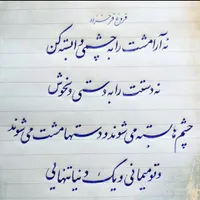 فروغ فرخزاد
نه آرامشت را به چشمی وابسته کن
نه دستت را به دستی دلخوش
چشم‌ها بسته می‌شوند و دستها مشت می‌شوند
و تو میمانی و یک دنیا تنهایی